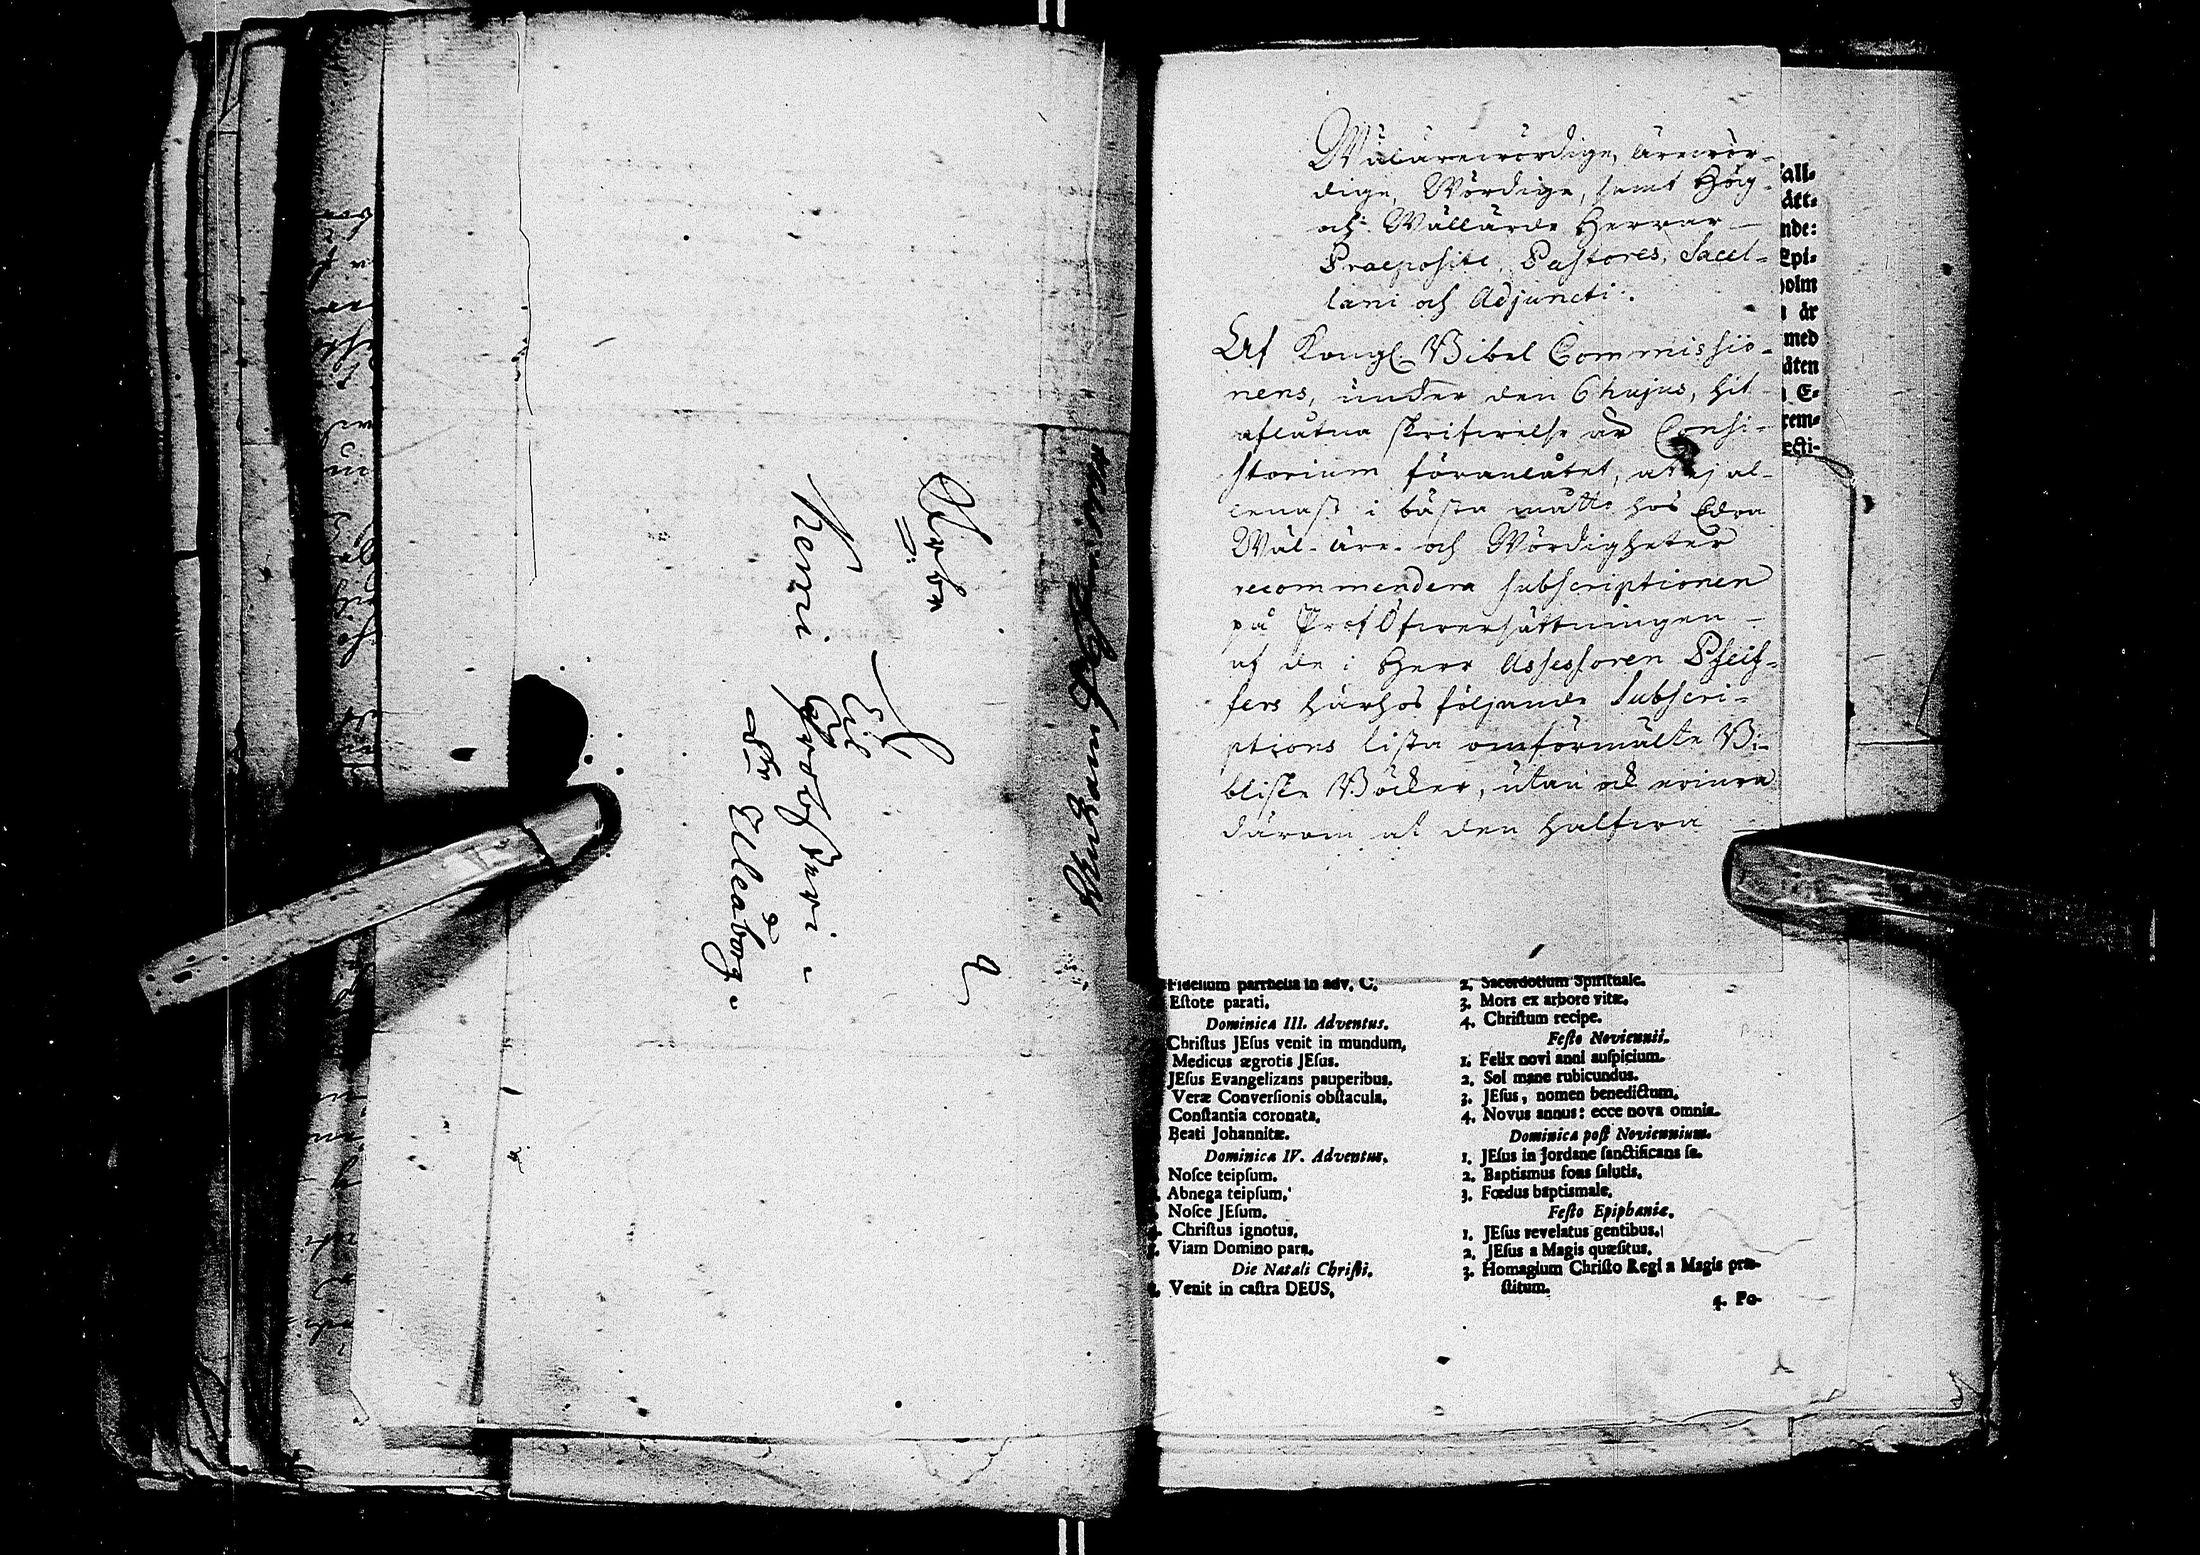 Orbr
Til
Kemi Prosteri
Ulеåborg.
Wälärewördige, ärewör-
dige, Wördige, samt Hög-
och Wällärde Herrar
Praepositi, Pastores, Sacel-
lani och Adjuncti.
Af Kongl. Bibel Commissio-
nens, under den 6 hujus, hit
aflåtna skrifwelse är Consi-
storium föranlåtet, at ej al-
lenast i bästa mätto hos Edra
Wäl- äre- och Wördigheter
recommendera subscriptionen
på Prof Öfwersättningen
af de i Herr Assessoren Pfeif-
fers härhos följande Subscri-
ptions lista omförmälte Bi-
bliske Böcker, utan ock erinra
därom at den halfwa
all-
ätt-
nde:
Epi-
olm
är
med
åten
E-
rem-
ecti-
Fidelium parrhesia in adv. C.
Eſtote parati.
Dominica III. Adventus.
Chriſtus JEſus venit in mundum,
Medicus ægrotis JEſus.
JEſus Evangelizans pauperibus.
Veræ Converſionis obſtacula.
Conſtantia coronata.
Beati Johannitæ.
Dominica IV. Adventus.
Noſce teipſum.
Abnega teipſum.
Noſce JEſum.
Chriſtus ignotus.
Viam Domino para.
Die Natali Chriſti.
Venit in caſtra DEUS.
2. Sacerdotium Spirituale.
3. Mors ex arbore vitæ.
4. Chriſtum recipe.
Feſto Noviennii.
1. Felix novi anni auſpicium.
2. Sol mane rubicundus.
3. JEſus, nomen benedictum.
4. Novus annus: ecce nova omnia.
Dominica poſt Noviennium.
1. JEſus in Jordane ſanctificans ſe.
2. Baptismus fons ſalutis.
3. Fœdus baptismale.
Feſto Epiphaniæ.
1. JEſus revelatus gentibus.
2. JEſus a Magis quæſitus.
3. Homagium Chriſto Regi a Magis præ-
ſtitum.
4. Po-